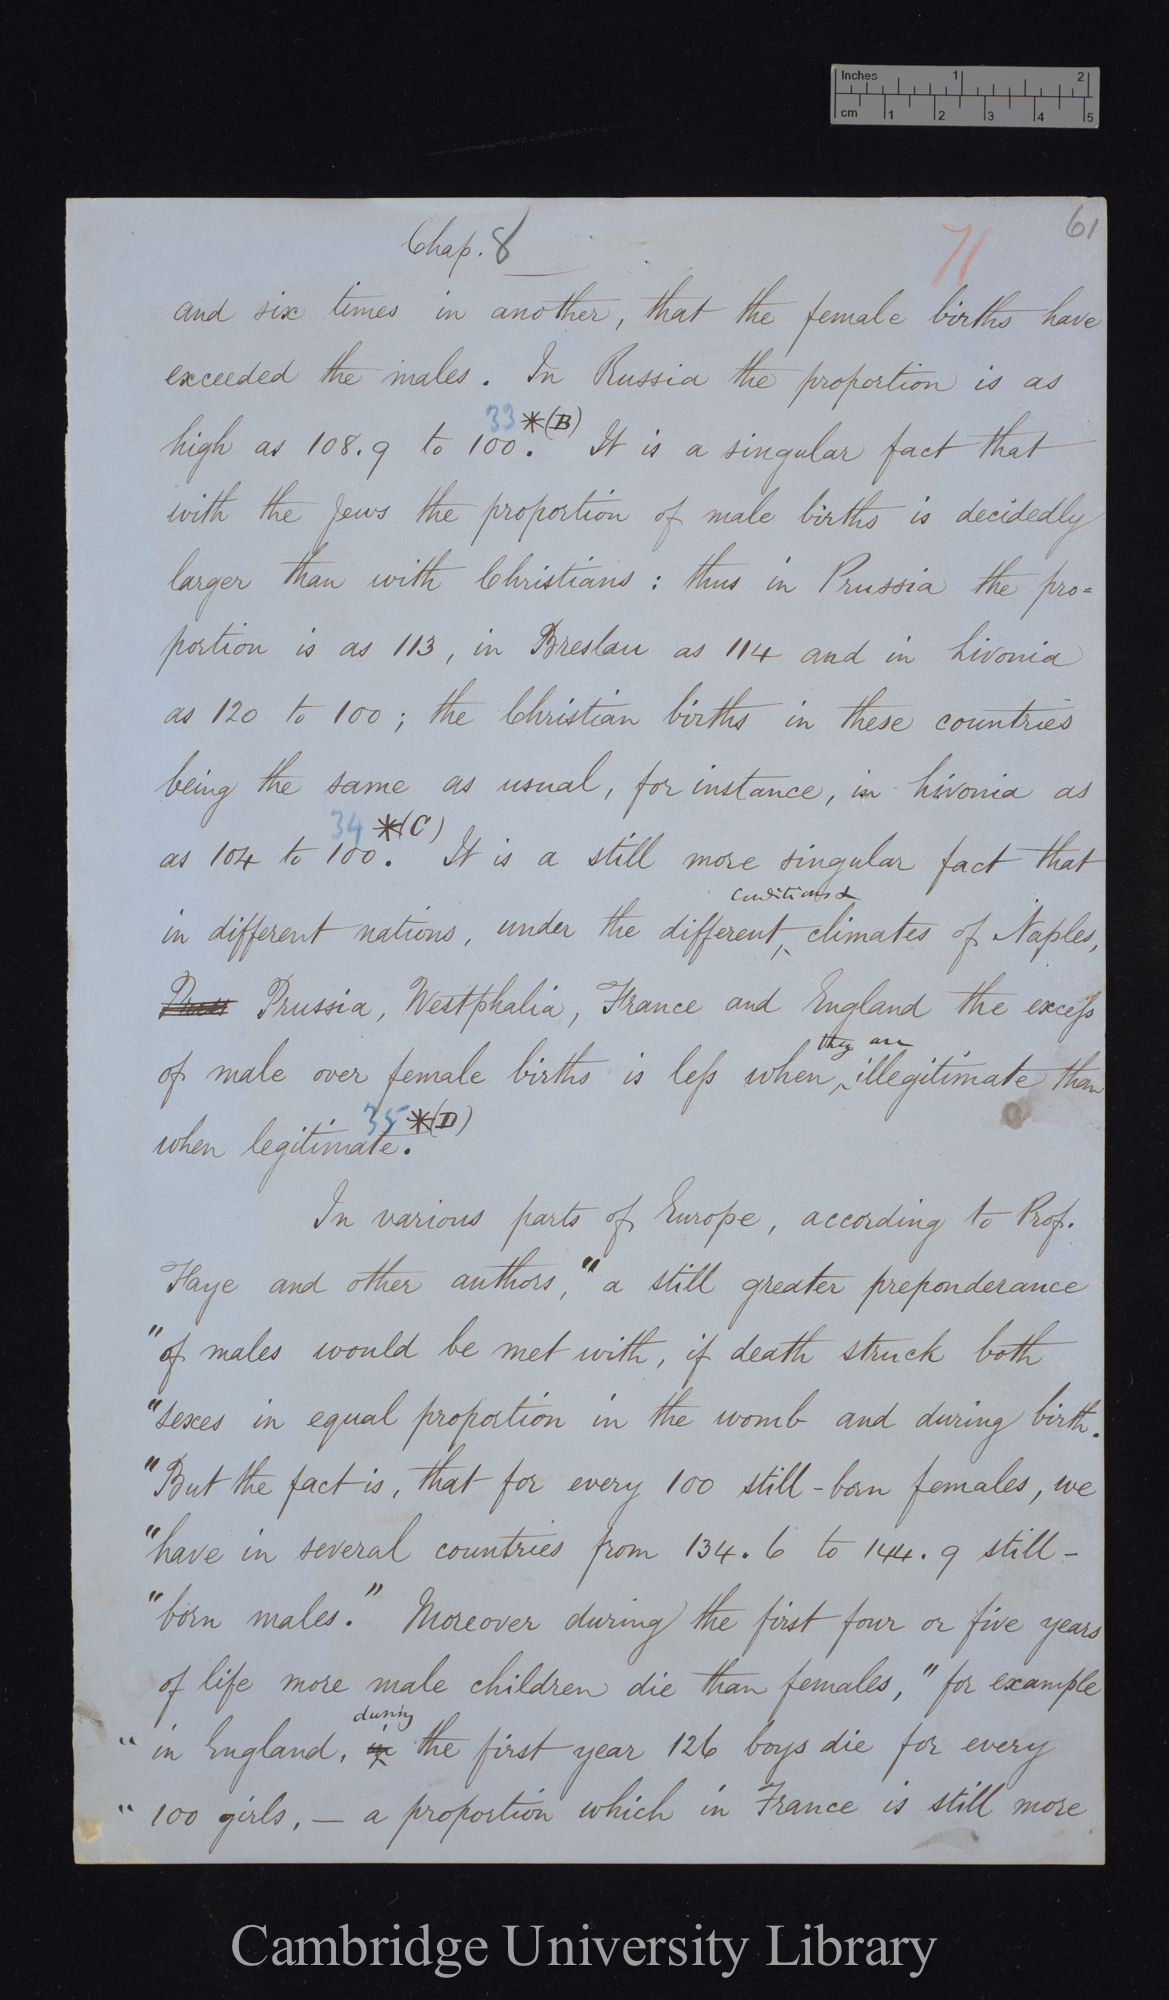 Inches 1 2
cm 1 2 3 4 5
61
Chap. 8
71
and six times in another, that the female births have
exceeded the males. In Russia the proportion is as
33 *(B)
high as 108.9 to 100. It is a singular fact that
with the Jews the proportion of male births is decidedly
larger than with Christians: thus in Prussia the pro=
portion is as 113, in Breslau as 114 and in Livonia
as 120 to 100; the Christian births in these countries
being the same as usual, for instance, in Livonia as
34 *(C)
as 104 to 100. It is a still more singular fact that
conditions &
in different nations, under the different, climates of Naples,
Pruss Prussia, Westphalia, France and England the excess
they are
of male over female births is less when illegitimate than
35 *(D)
when legitimate.
In various parts of Europe, according to Prof.
Faye and other authors, "a still greater preponderance
"of males would be met with, if death struck both
"sexes in equal proportion in the womb and during birth.
"But the fact is, that for every 100 still-born females, we
"have in several countries from 134.6 to 144.9 still-
"born males." Moreover during the first four or five years
of life more male children die than females, "for example
during
"in England, in the first year 126 boys die for every
"100 girls, — a proportion which in France is still more
Cambridge University Library